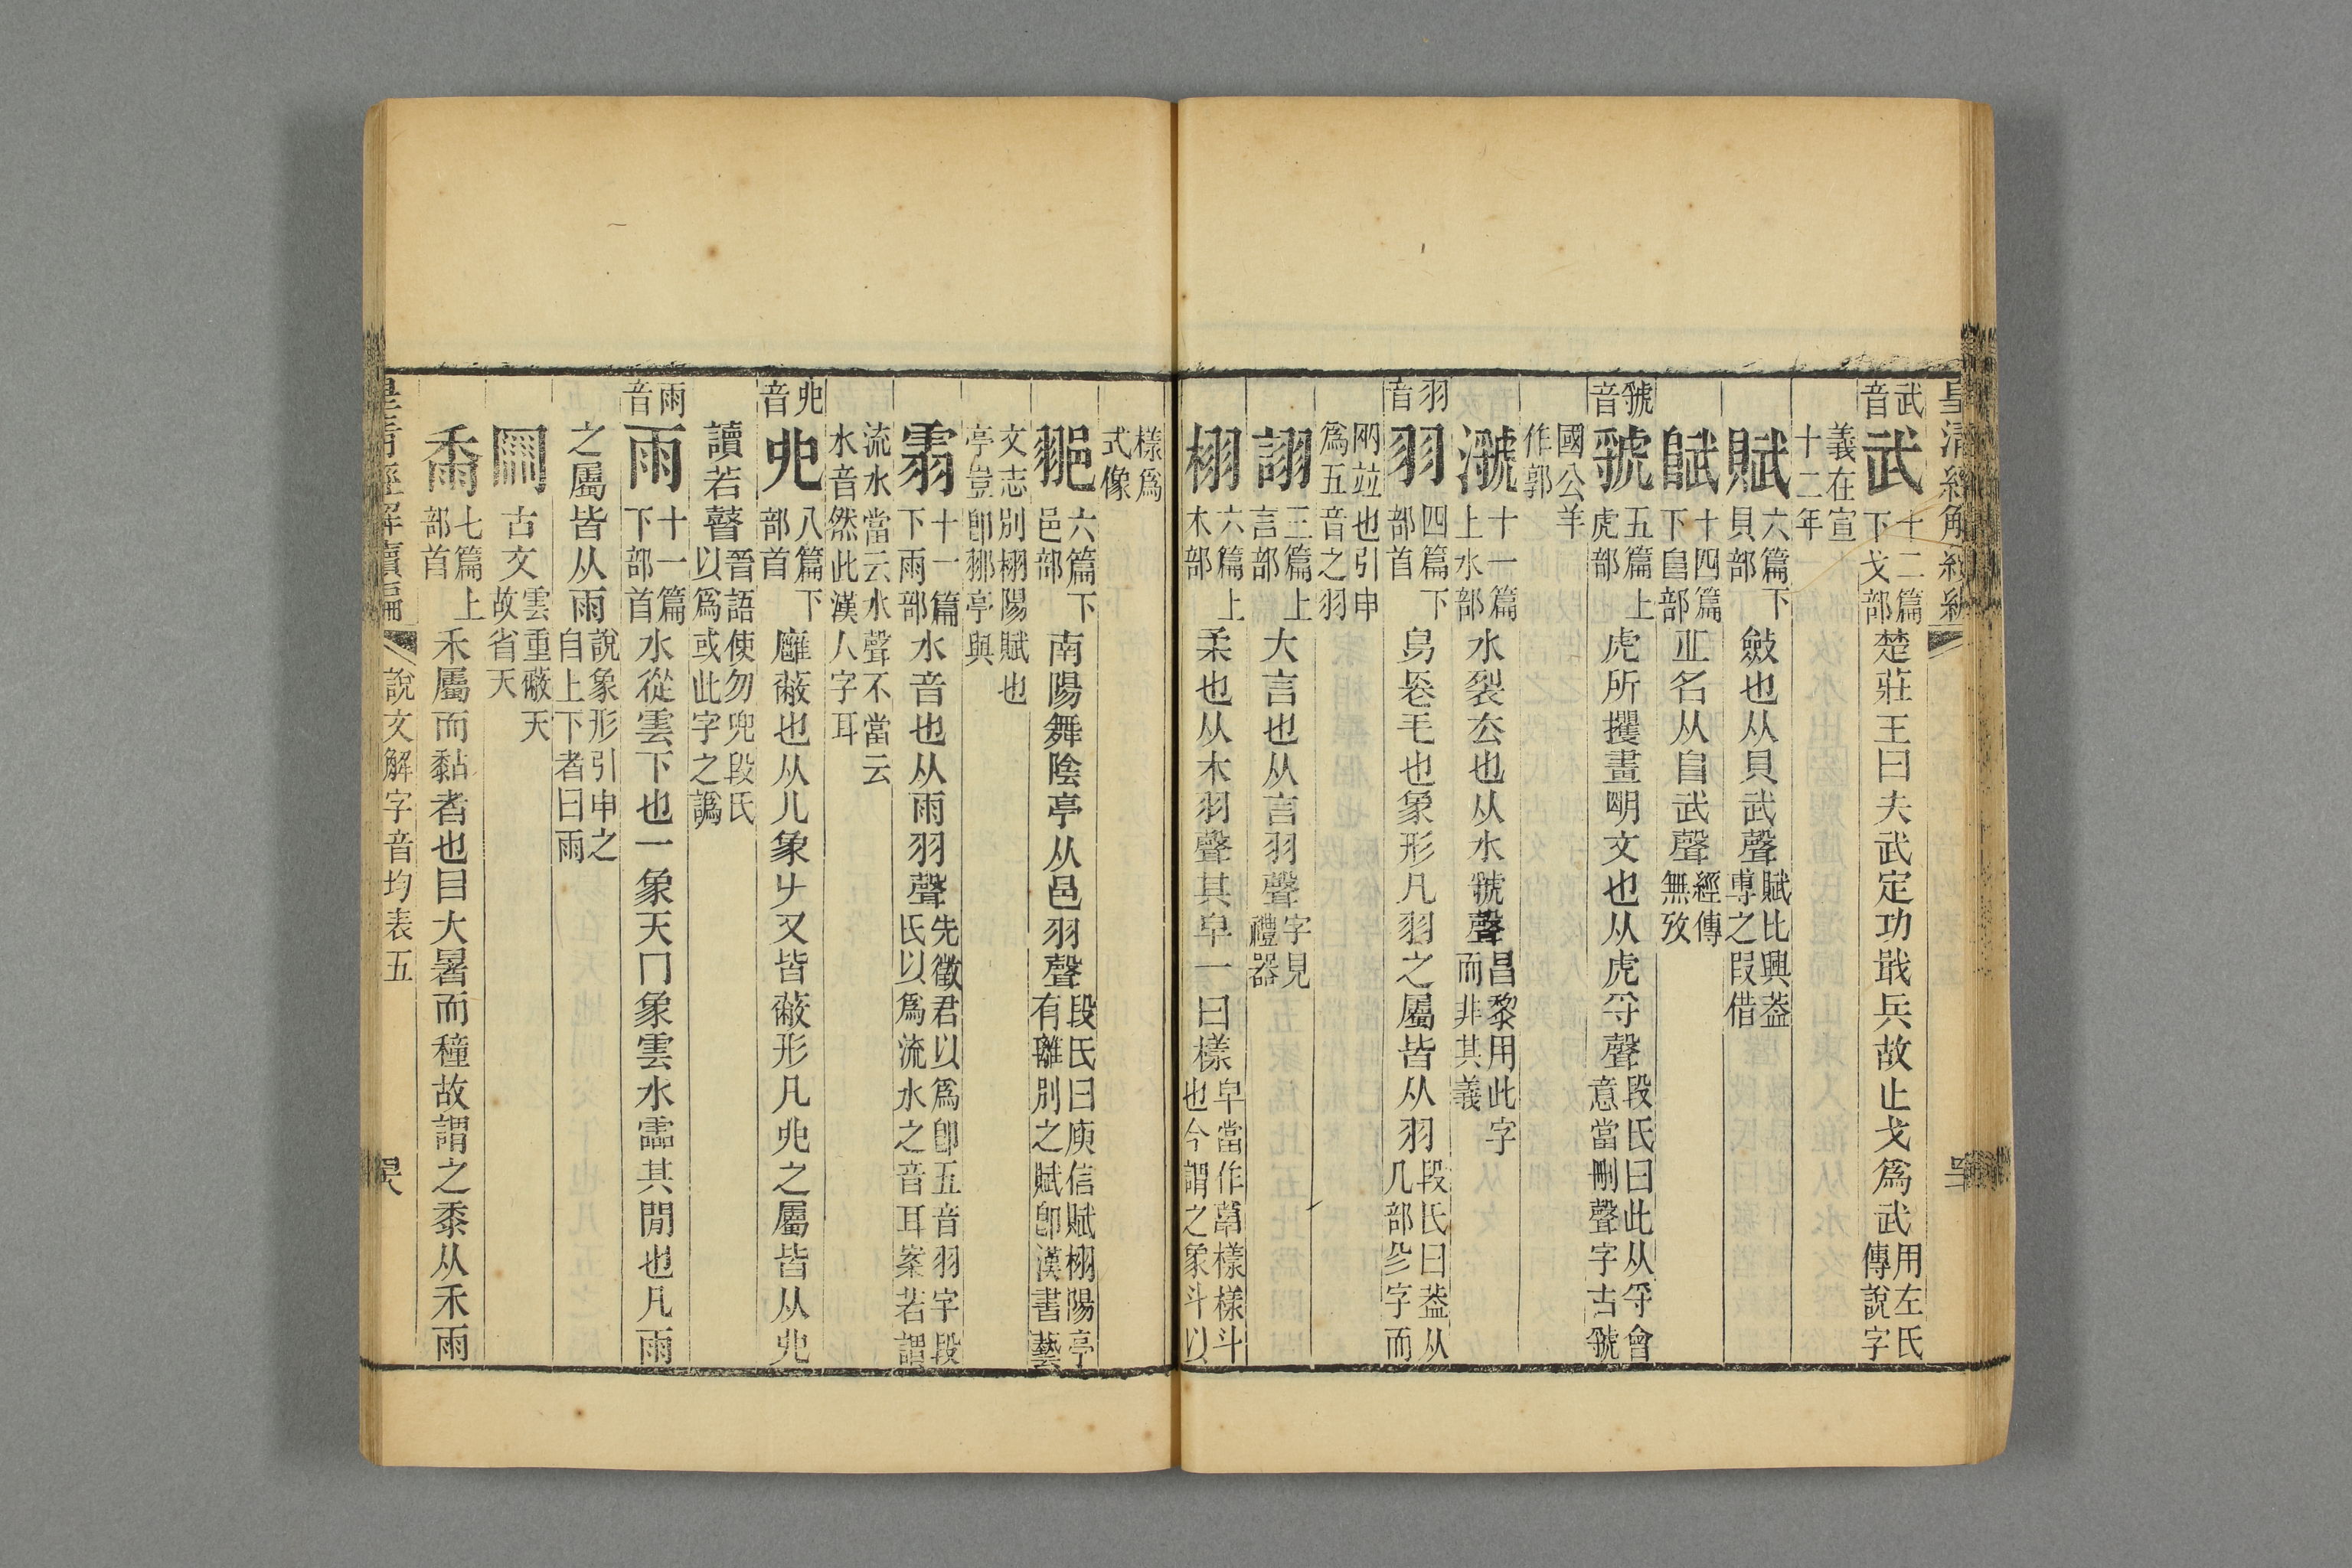 皇清經解續編
武音 武 十二篇下戈部 楚莊王曰夫武定功戢兵故止戈爲武 用左氏傳說字
義在宣十二年
賦 六篇下貝部 斂也从貝武聲 賦比興葢尃之叚借
䟼 十四篇下𨸏部 从𨸏武聲 經傳無攷
虢音 虢 五篇上虎部 虎所攫畫明文也从虎寽聲 段氏曰此从寽會意當刪聲字古虢
國公羊作郭
瀥 十一篇上水部 水裂去也从水虢聲 昌黎用此字而非其義
羽音 羽 四篇下部首 鳥長毛也象形凡羽之屬皆从羽 段氏曰葢从几部㐱字而
兩竝也引申爲五音之羽
詡 三篇上言部 大言也从言羽聲 字見禮器
栩 六篇上木部 柔也从木羽聲其皁一曰樣 皁當作草樣樣斗也今謂之象斗以
樣爲式像
䣁 六篇下邑部 南陽舞陰亭从邑羽聲 段氏曰庾信賦栩陽亭有離別之賦卽漢書藝
文志別栩陽賦也亭豈卽䣁亭與
䨒 十一篇下雨部 水音也从雨羽聲 先徵君以爲卽五音羽字段氏以爲流水之音耳案若謂
流水當云水聲不當云水音然此漢人字耳
𠑹音 𠑹 八篇下部首 廱蔽也从儿象𠂇又皆蔽形凡𠑹之屬皆从𠑹
讀若瞽 晉語使勿兜段氏以爲或此字之譌
雨音 雨 十一篇下部首 水從雲下也一象天冂象雲水霝其閒也凡雨
之屬皆从雨 說象形引申之自上下者曰雨
𠕲 古文 雲重蔽天故省天
黍 七篇上部首 禾屬而黏者也㠯大暑而穜故謂之黍从禾雨
皇清經解續編 說文解字音均表五